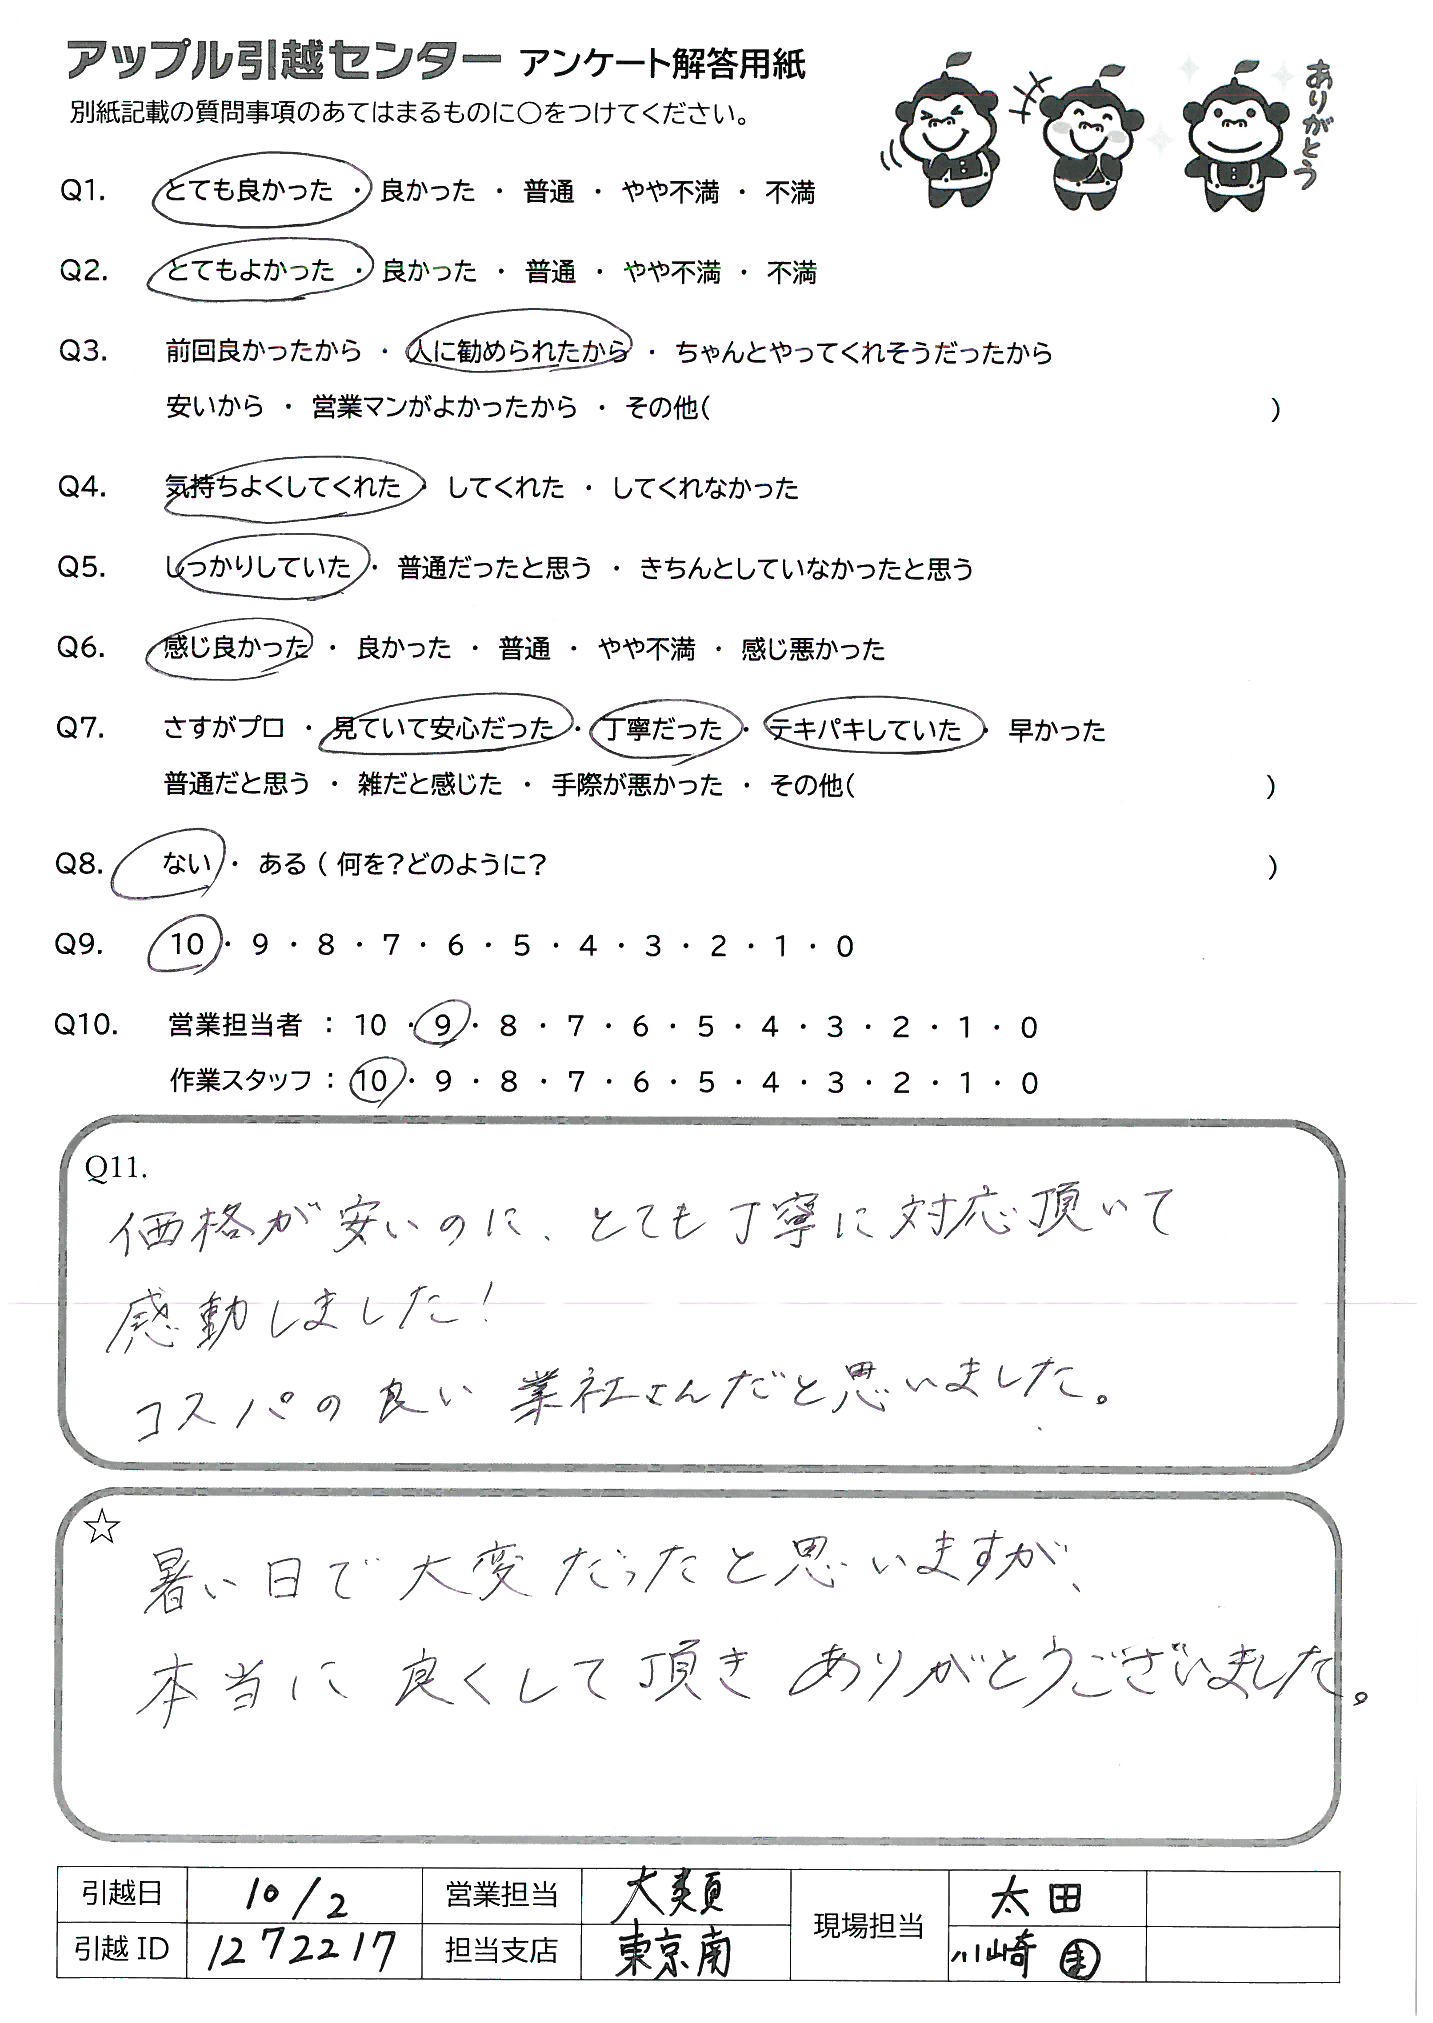 アップル引越センター アンケート解答用紙
別紙記載の質問事項のあてはまるものに〇をつけてください。
ありがとう
Q1. とても良かった ・ 良かった ・ 普通 ・ やや不満 ・ 不満
Q2. とてもよかった ・ 良かった ・ 普通 ・ やや不満 ・ 不満
Q3. 前回良かったから ・ 人に勧められたから ・ ちゃんとやってくれそうだったから
安いから ・ 営業マンがよかったから ・ その他( )
Q4. 気持ちよくしてくれた ・ してくれた ・ してくれなかった
Q5. しっかりしていた ・ 普通だったと思う ・ きちんとしていなかったと思う
Q6. 感じ良かった ・ 良かった ・ 普通 ・ やや不満 ・ 感じ悪かった
Q7. さすがプロ ・ 見ていて安心だった ・ 丁寧だった ・ テキパキしていた ・ 早かった
普通だと思う ・ 雑だと感じた ・ 手際が悪かった ・ その他( )
Q8. ない ・ ある ( 何を?どのように? )
Q9. 10 ・ 9 ・ 8 ・ 7 ・ 6 ・ 5 ・ 4 ・ 3 ・ 2 ・ 1 ・ 0
Q10. 営業担当者 : 10 ・ 9 ・ 8 ・ 7 ・ 6 ・ 5 ・ 4 ・ 3 ・ 2 ・ 1 ・ 0
作業スタッフ : 10 ・ 9 ・ 8 ・ 7 ・ 6 ・ 5 ・ 4 ・ 3 ・ 2 ・ 1 ・ 0
Q11.
価格が安いのに、とても丁寧に対応頂いて
感動しました!
コスパの良い業社さんだと思いました。
☆
暑い日で大変だったと思いますが、
本当に良くして頂きありがとうございました。
引越日 10/2 営業担当 現場担当 太田
引越ID 1272217 担当支店 東京南 川崎